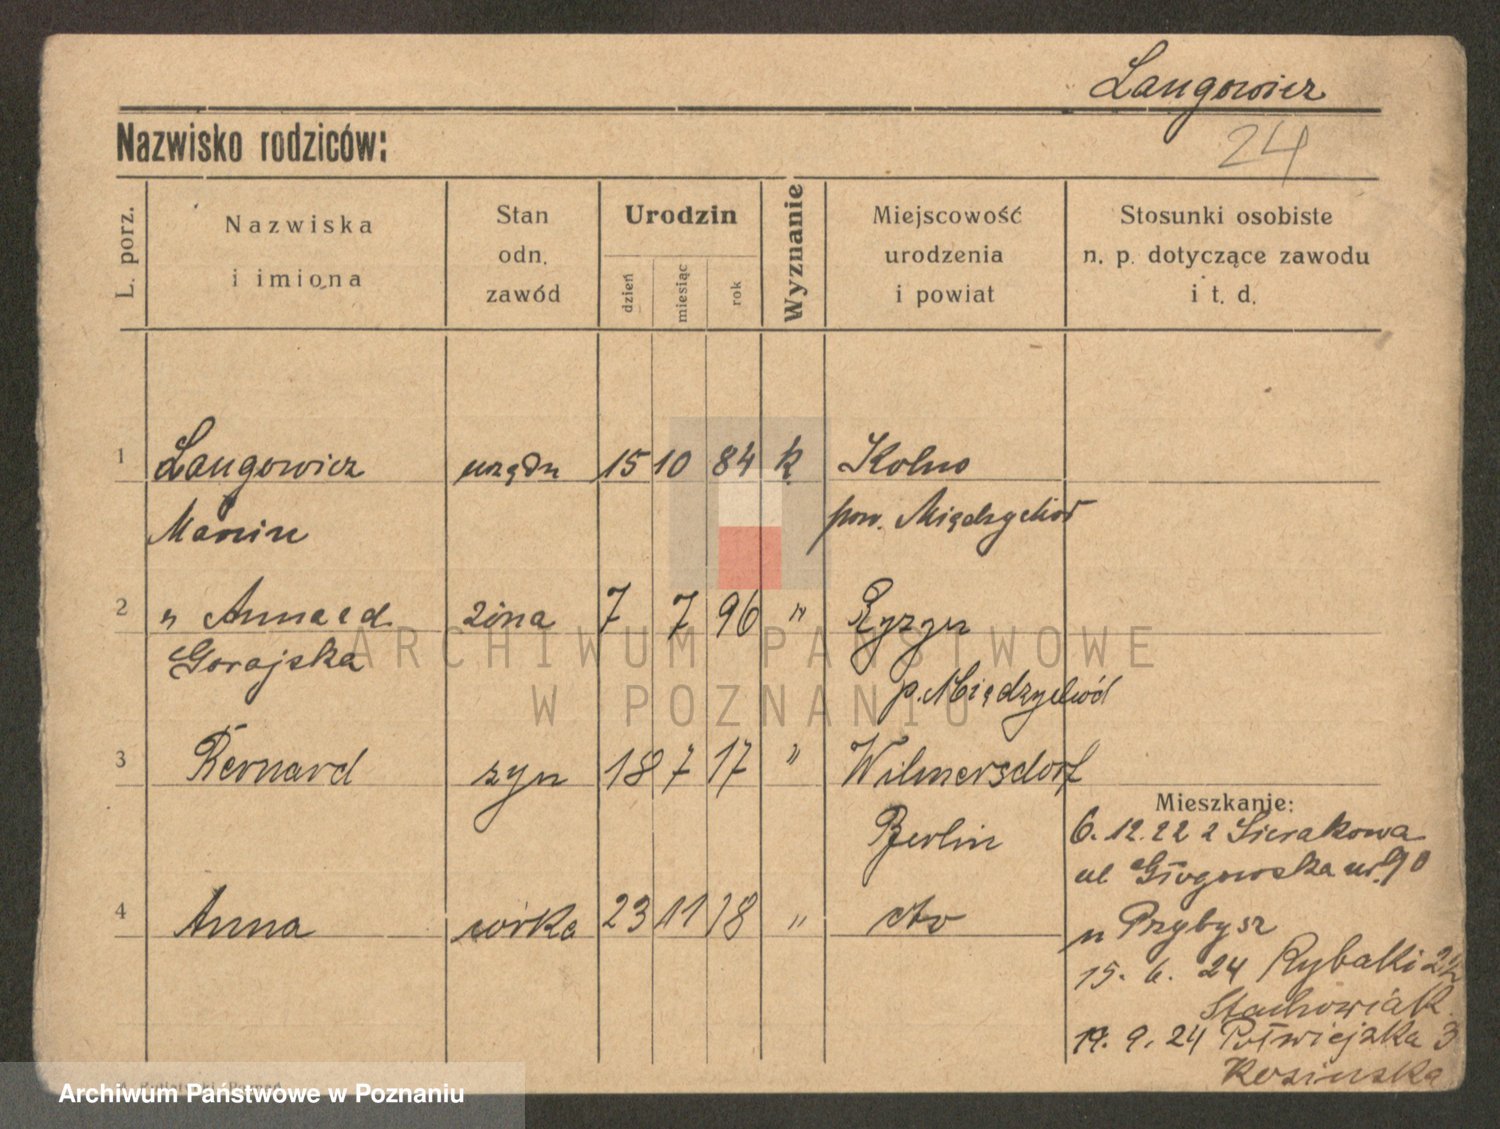 Langowicz
Nazwisko rodziców:
24
L. porz.
Nazwiska i imiona
Stan odn. zawód
Urodzin
dzień miesiąc rok
Wyznanie
Miejscowość urodzenia i powiat
Stosunki osobiste n. p. dotyczące zawodu i t. d.
1 Langowicz urzędn 15 10 84 k Kolno
Marcin pow. Międzychód
2 " Anna żona 7 7 96 "
Gorajska p. Międzychód
3 Bernard syn 18 7 17 " Wilmersdorf
Berlin
4 Anna córka 23 11 18 " dto
Mieszkanie:
6. 12. 22 z Sierakowa
ul Głogowska nr. 90
u Przybysz
15. 6. 24 Rybaki
Stachowiak
9. 24 Półwiejska 3
Kosinska
ARCHIWUM PAŃSTWOWE
W POZNANIU
Archiwum Państwowe w Poznaniu